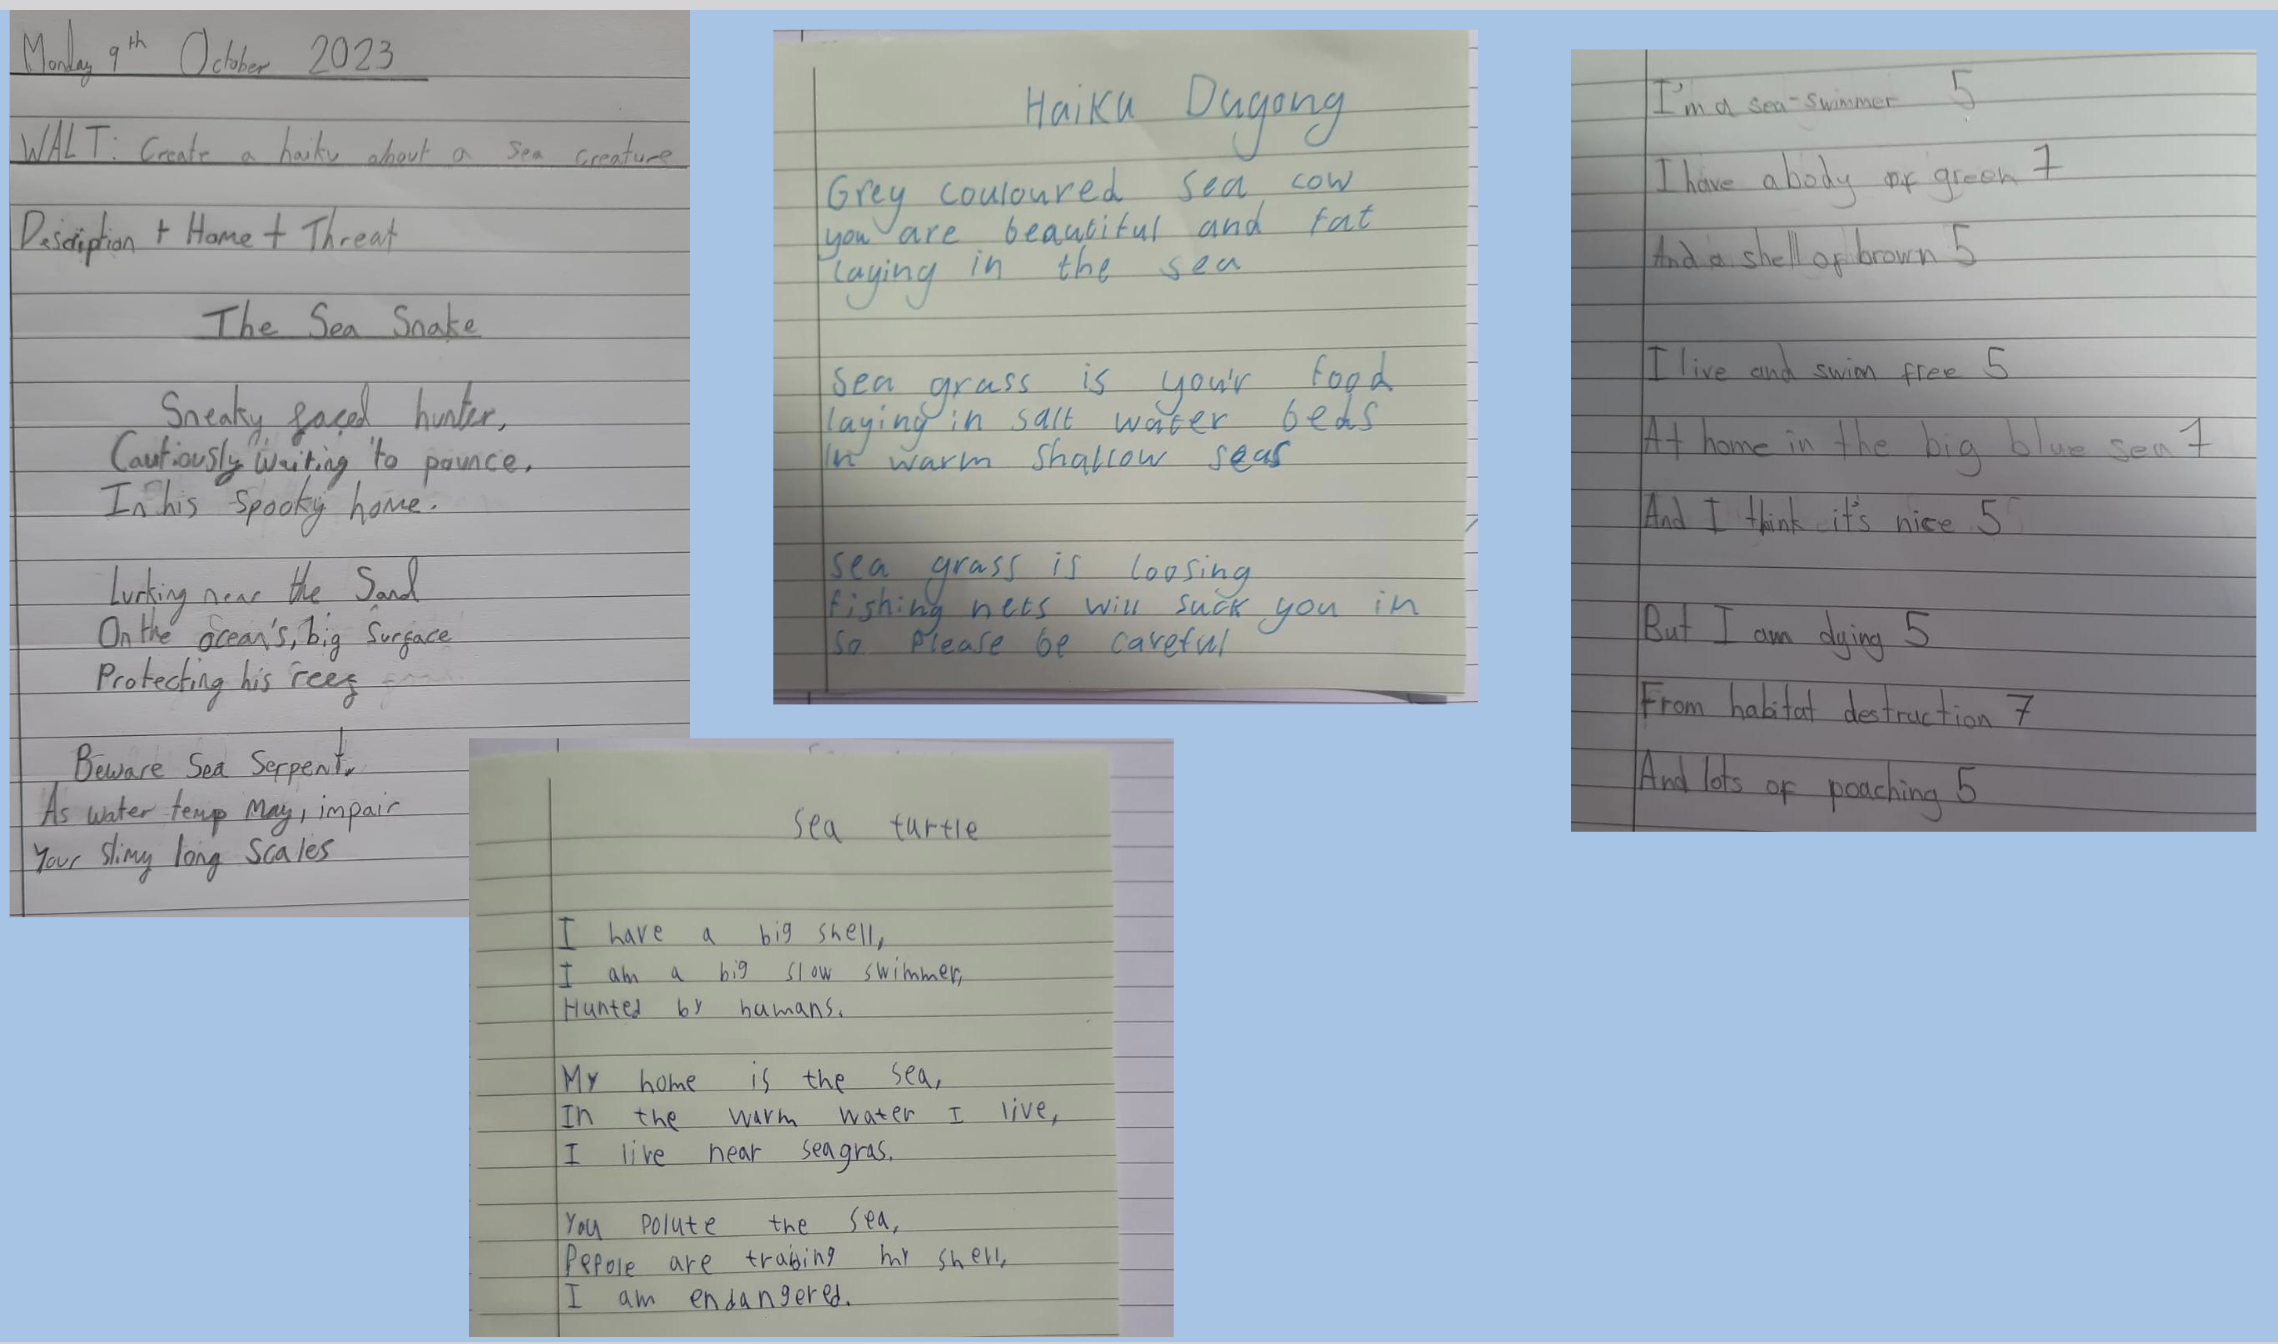 Monday 9th October 2023
WALT: Create a haiku about a sea creature
Description + Home + Threat
The Sea Snake
Sneaky faced hunter,
Cautiously waiting to pounce,
In his spooky home.
Lurking near the Sand
On the ocean's, big Surface
Protecting his reef
Beware Sea Serpent,
As water temp May, impair
Your Slimy long Scales
Haiku Dugong
Grey couloured sea cow
you are beautiful and fat
laying in the sea
sea grass is you'r food
laying in salt water beds
in warm shallow seas
sea grass is loosing
fishing nets will suck you in
so Please be careful
I'm a sea-swimmer 5
I have a body of green 7
And a shell of brown 5
I live and swim free 5
At home in the big blue sea 7
And I think it's nice 5
But I am dying 5
From habitat destruction 7
And lots of poaching 5
sea turtle
I have a big shell,
I am a big slow swimmer,
Hunted by humans.
My home is the sea,
In the warm water I live,
I live near seagras.
You polute the sea,
Pepole are trading my shell,
I am endangered.